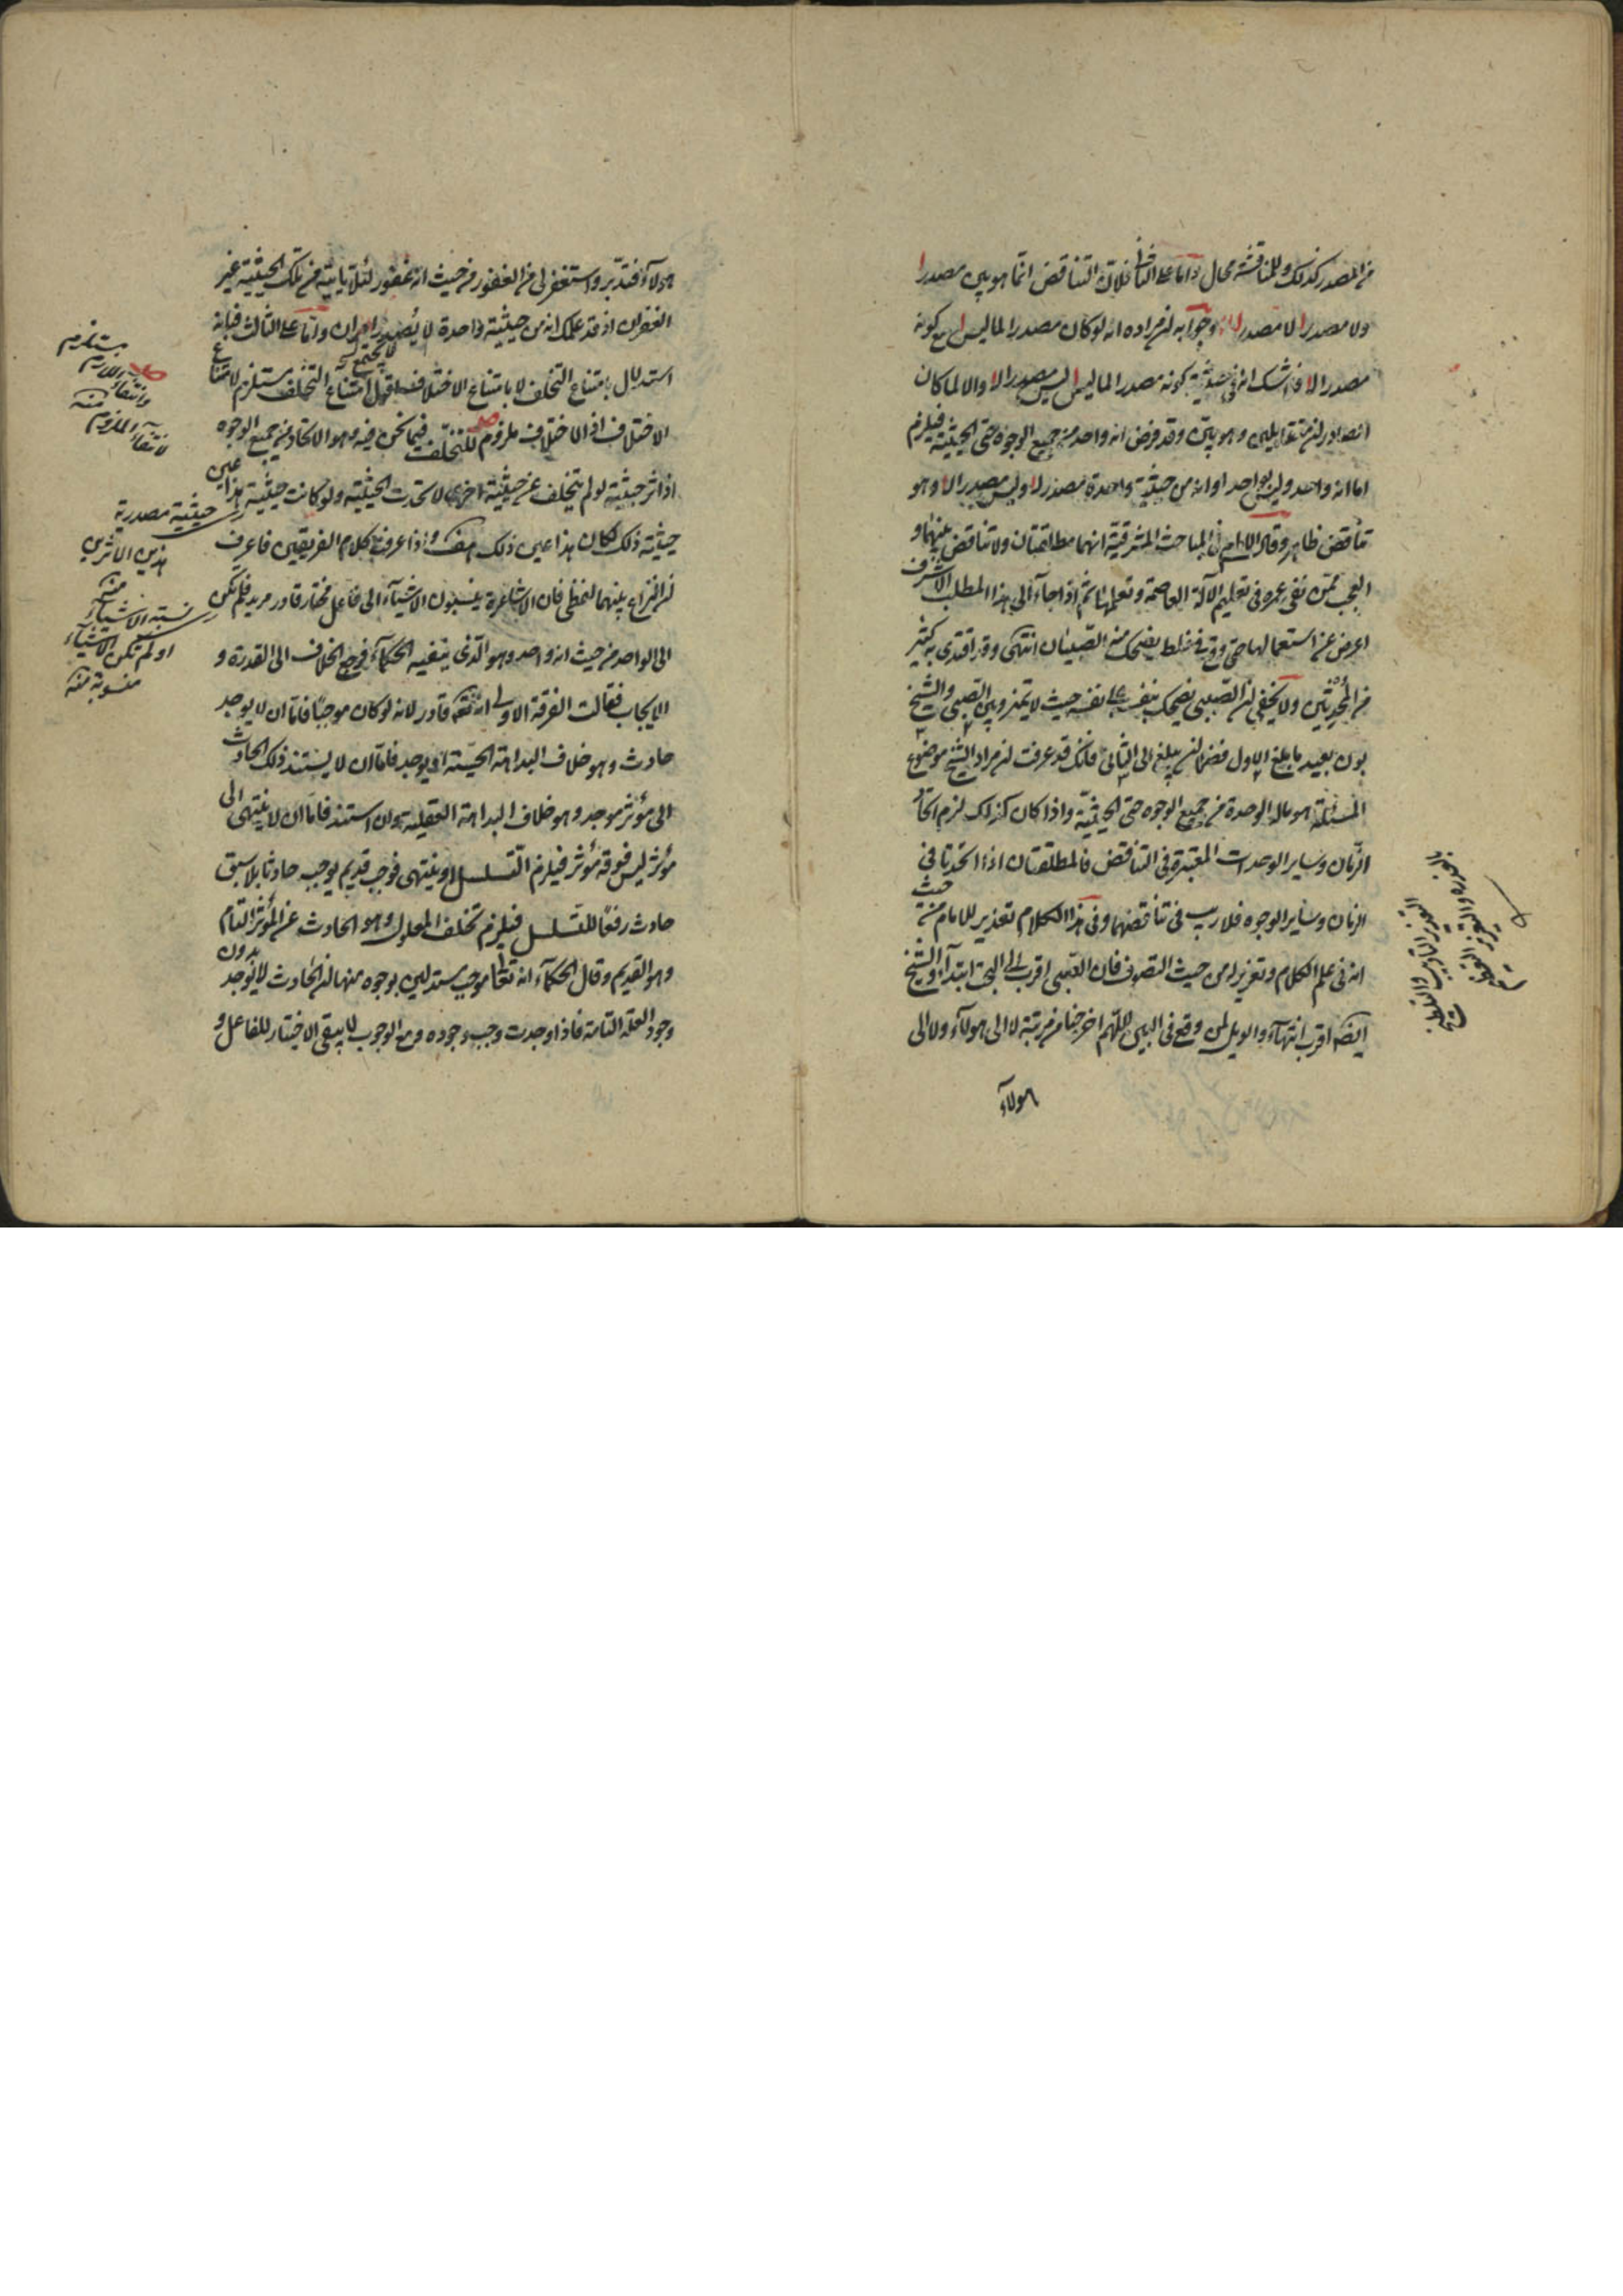 من المصدر كذلك وللمناقشة مجال واما على الثانى فلان التناقض انما هو بين مصدر ا
ولا مصدر ا لا مصدر لا ا وجوابه ان مراده انه لو كان مصدرا لما ليس ا مع كونه
مصدر الا ا فلا شك انه فى حيثية كونه مصدرا لما ليس ا ليس مصدر الا ا والا لما كان
المصادر ان متقابلين وهو بين وقد فرض انه واحد من جميع الوجوه حتى الحيثية فيلزم
اما انه واحد وليس بواحد او انه من حيثية واحدة مصدر لا وليس مصدر الا وهو
تناقض ظاهر وقال الامام فى المباحث المشرقية انهما مطلقتان ولا تناقض بينهما و
العجب ممن نفى عمره فى تعليم الآلة العاصمة وتعلمها ثم اذا جاء الى هذا المطلب الاشرف
اعرض عن استعمالها حتى وقع فى غلط يضحك منه الصبيان انتهى وقد اقتدى به كثير
من المحدثين ولا يخفى ان الصبى يضحك بنفسه على نفسه حيث لا يتميز وبين الصبى والشيخ
بون بعيد ما بلغ الاول فضلا ان يبلغ الى الثانى فانك قد عرفت ان مراد الشيخ موضوع
المسئلة هو ماله الوحدة من جميع الوجوه حتى الحيثية واذا كان كذلك لزم اتحاد
الزمان وساير الوحدات المعتبرة فى التناقض فالمطلقتان اذا اتحدتا فى
الزمان وساير الوجوه فلا ريب فى تناقضهما وفى هذا الكلام تعذير للامام من حيث
انه فى علم الكلام وتعزير له من حيث التصوف فان الصبى اقرب الى الحق ابتداء والشيخ
ايضا اقرب انتهاء والويل لمن وقع فى البين اللهم اخرجنا من مرتبة لا الى هولاء ولا الى
هولاء
هولاء فتدبر واستغفر لى من الغفور من حيث انه غفور لئلا ياتيه من تلك الحيثية غير
الغفران اذ قد علمك انه من حيثية واحدة لا يصدر امران واما على الثالث فبانه
استدلال بامتناع التخلف لا بامتناع الاختلاف اقول امتناع التخلف مستلزم لامتناع
الاختلاف اذ الاختلاف ملزوم للتخلف فيما نحن فيه وهو الاتحاد من جميع الوجوه
اذ اثر حيثية لو لم يتخلف عن حيثية اخرى لاتحدت الحيثية ولو كانت حيثية هذا عين
حيثية ذلك لكان هذا عين ذلك هف واذا عرفت كلام الفريقين فاعرف
ان النزاع بينهما لفظى فان الاشاعرة ينسبون الاشياء الى فاعل مختار قادر مريد فلم تكن
الى الواحد من حيث انه واحد وهو الذى ينفيه الحكماء فرجع الخلاف الى القدرة و
الايجاب فقالت الفرقة الاولى انه تعالى قادر لانه لو كان موجبا فاما ان لا يوجد
حادث وهو خلاف البداهة الحسية او يوجد فاما ان لا يستند ذلك الحادث
الى مؤثر موجد وهو خلاف البداهة العقلية وان استند فاما ان لا ينتهى الى
مؤثر ليس فوقه مؤثر فيلزم التسلسل او ينتهى فوجب قديم يوجب حادثا بلا سبق
حادث رفعا للتسلسل فيلزم تخلف المعلول وهو الحادث عن المؤثر التام
وهو القديم وقال الحكماء انه تعالى موجب مستدلين بوجوه منها ان الحادث لا يوجد بدون
وجود العلة التامة فاذا وجدت وجب وجوده ومع الوجوب لا يبقى الاختيار للفاعل و
يستلزم
اللازم
وانتفاء
لانتفاء الملزوم
منه
حيثية مصدرية
هذين الاثرين
منه
نسبة الاشياء
او لم تكن الاشياء
منسوبة منه